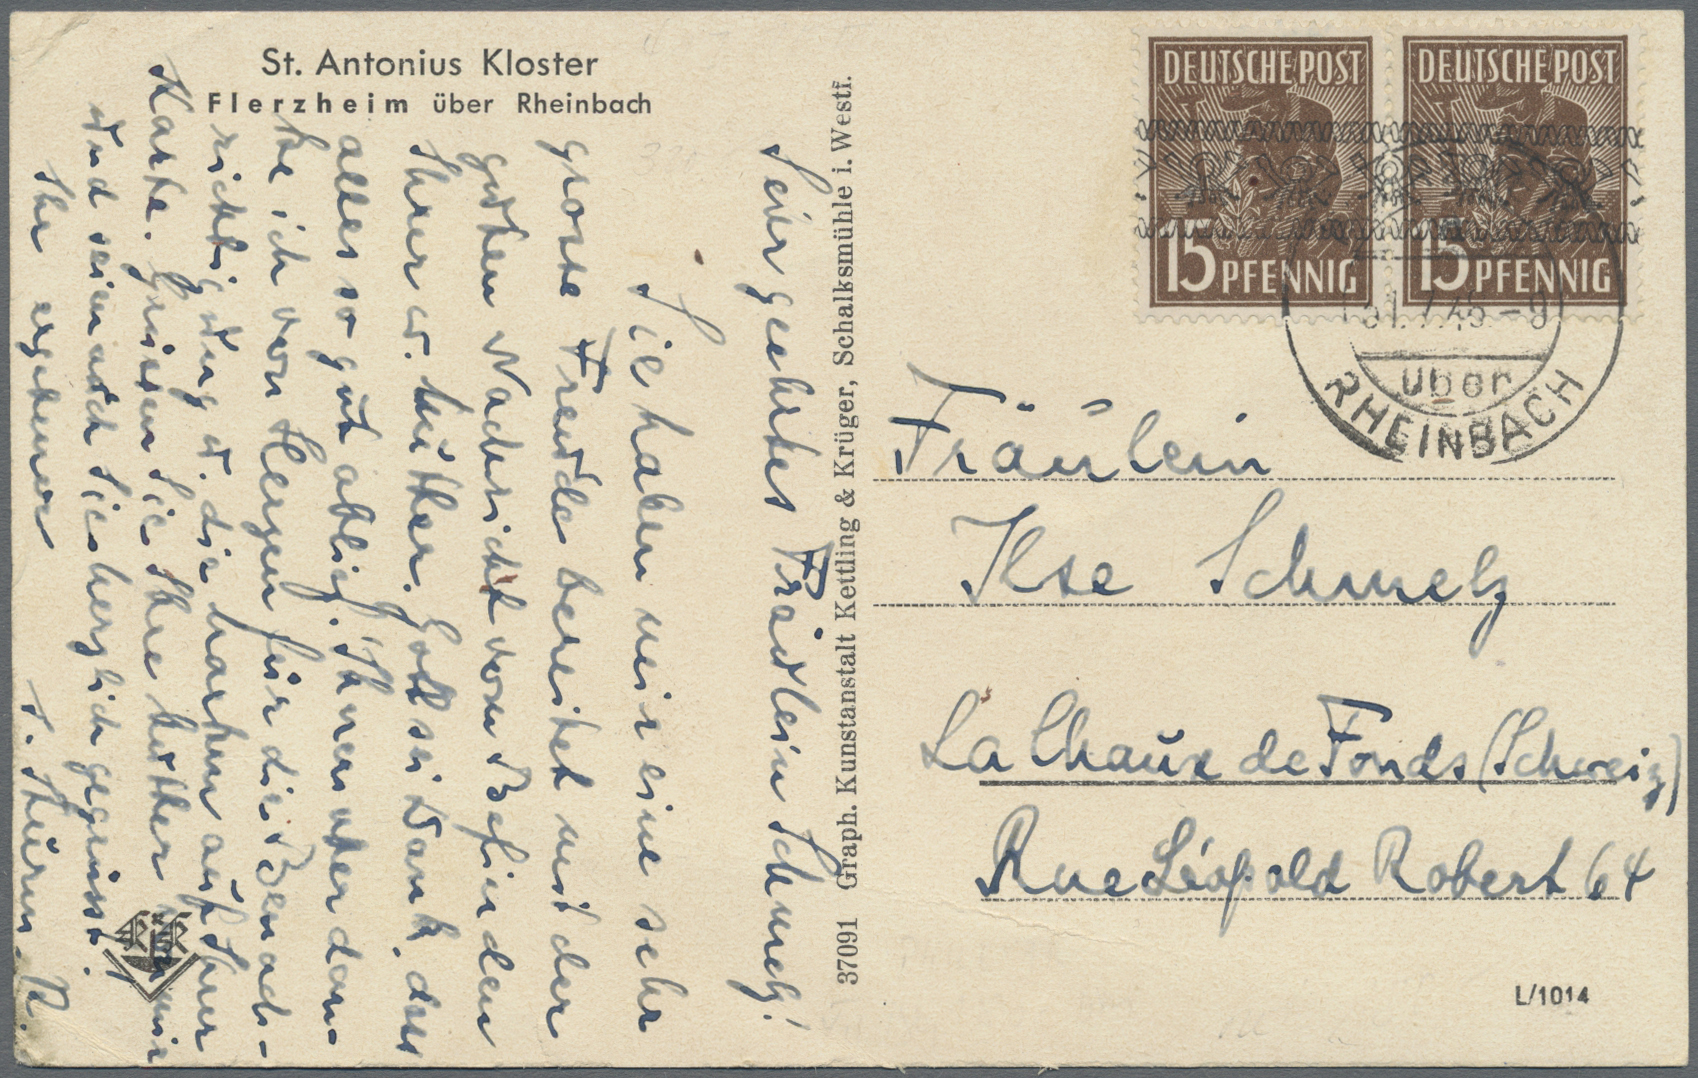 St. Antonius Kloster
Flerzheim über Rheinbach
Sehr geehrtes Fräulein Schmelz!
Sie haben mir eine sehr
grosse Freude bereitet mit der
guten Nachricht vom Befinden
Ihrer w. Mutter. Gott sei Dank, dass
alles so gut ablief. Ihnen aber dan-
ke ich von Herzen für die Benach-
richtigung u. die Marken auf Ihrer
Karte. Grüssen Sie Ihre Mutter von mir
und seien auch Sie herzlich gegrüsst.
Ihr ergebener
J. Thürn. R.
K&K
37091 Graph. Kunstanstalt Kettling & Krüger, Schalksmühle i. Westf.
DEUTSCHE POST
15 PFENNIG
DEUTSCHE POST
15 PFENNIG
31.7.48.-9
über
RHEINBACH
Fräulein
Ilse Schmelz
La Chaux de Fonds (Schweiz)
Rue Léopold Robert 64
L/1014